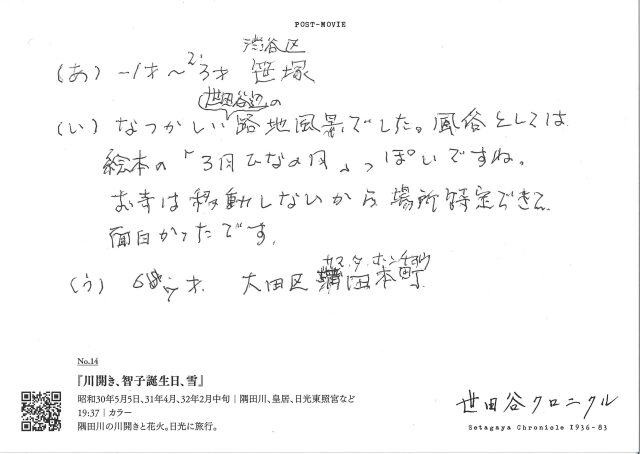 POST-MOVIE
渋谷区
(あ) -1才〜2、3才 笹塚
世田谷辺の
(い) なつかしい路地風景でした。風俗としては
絵本の「3月ひなの月」っぽいですね。
お寺は移動しないから場所特定できて
面白かったです。
(う) 6、7才. 大田区蒲田本町
No.14
『川開き、智子誕生日、雪』
昭和30年5月5日、31年4月、32年2月中旬｜隅田川、皇居、日光東照宮など
19:37｜カラー
隅田川の川開きと花火。日光に旅行。
世田谷クロニクル
Setagaya Chronicle 1936-83